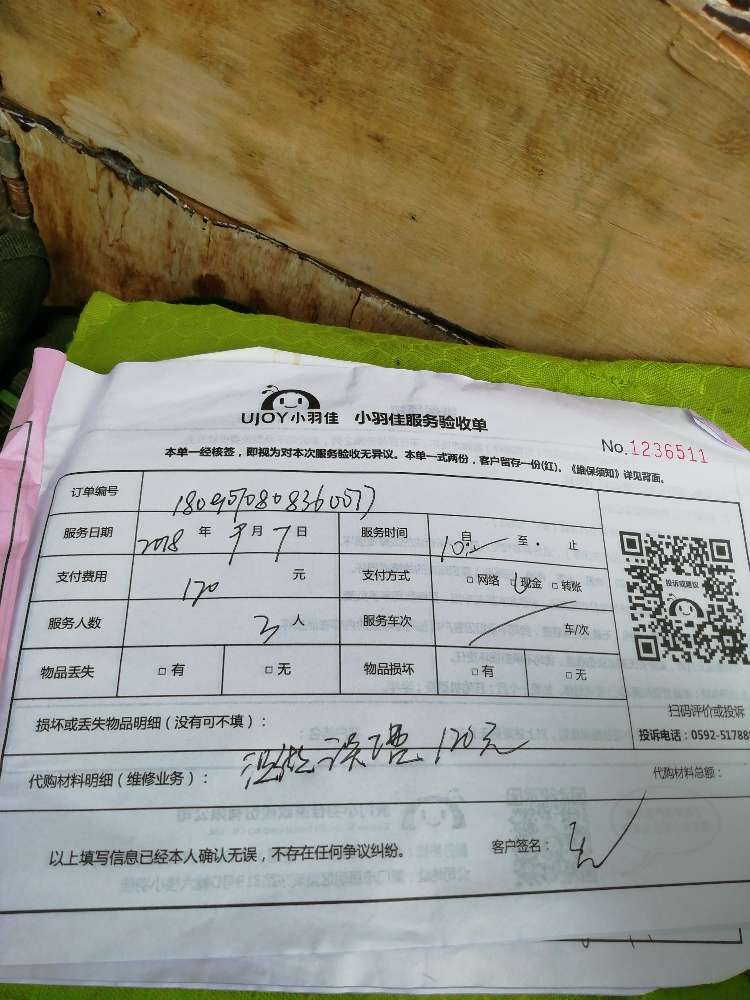 UJOY小羽佳 小羽佳服务验收单
No.1236511
本单一经核签，即视为对本次服务验收无异议。本单一式两份，客户留存一份(红)。《维保须知》详见背面。
订单编号
服务日期 2018 年 9 月 7 日 服务时间 10 自 至 止
支付费用 120 元 支付方式 网络 现金 转账
服务人数 3 人 服务车次 车/次
物品丢失 有 无 物品损坏 有 无
投诉或建议
扫码评价或投诉
投诉电话：0592-51788
损坏或丢失物品明细（没有可不填）：
代购材料明细（维修业务）： 120元 代购材料总额：
以上填写信息已经本人确认无误，不存在任何争议纠纷。 客户签名：